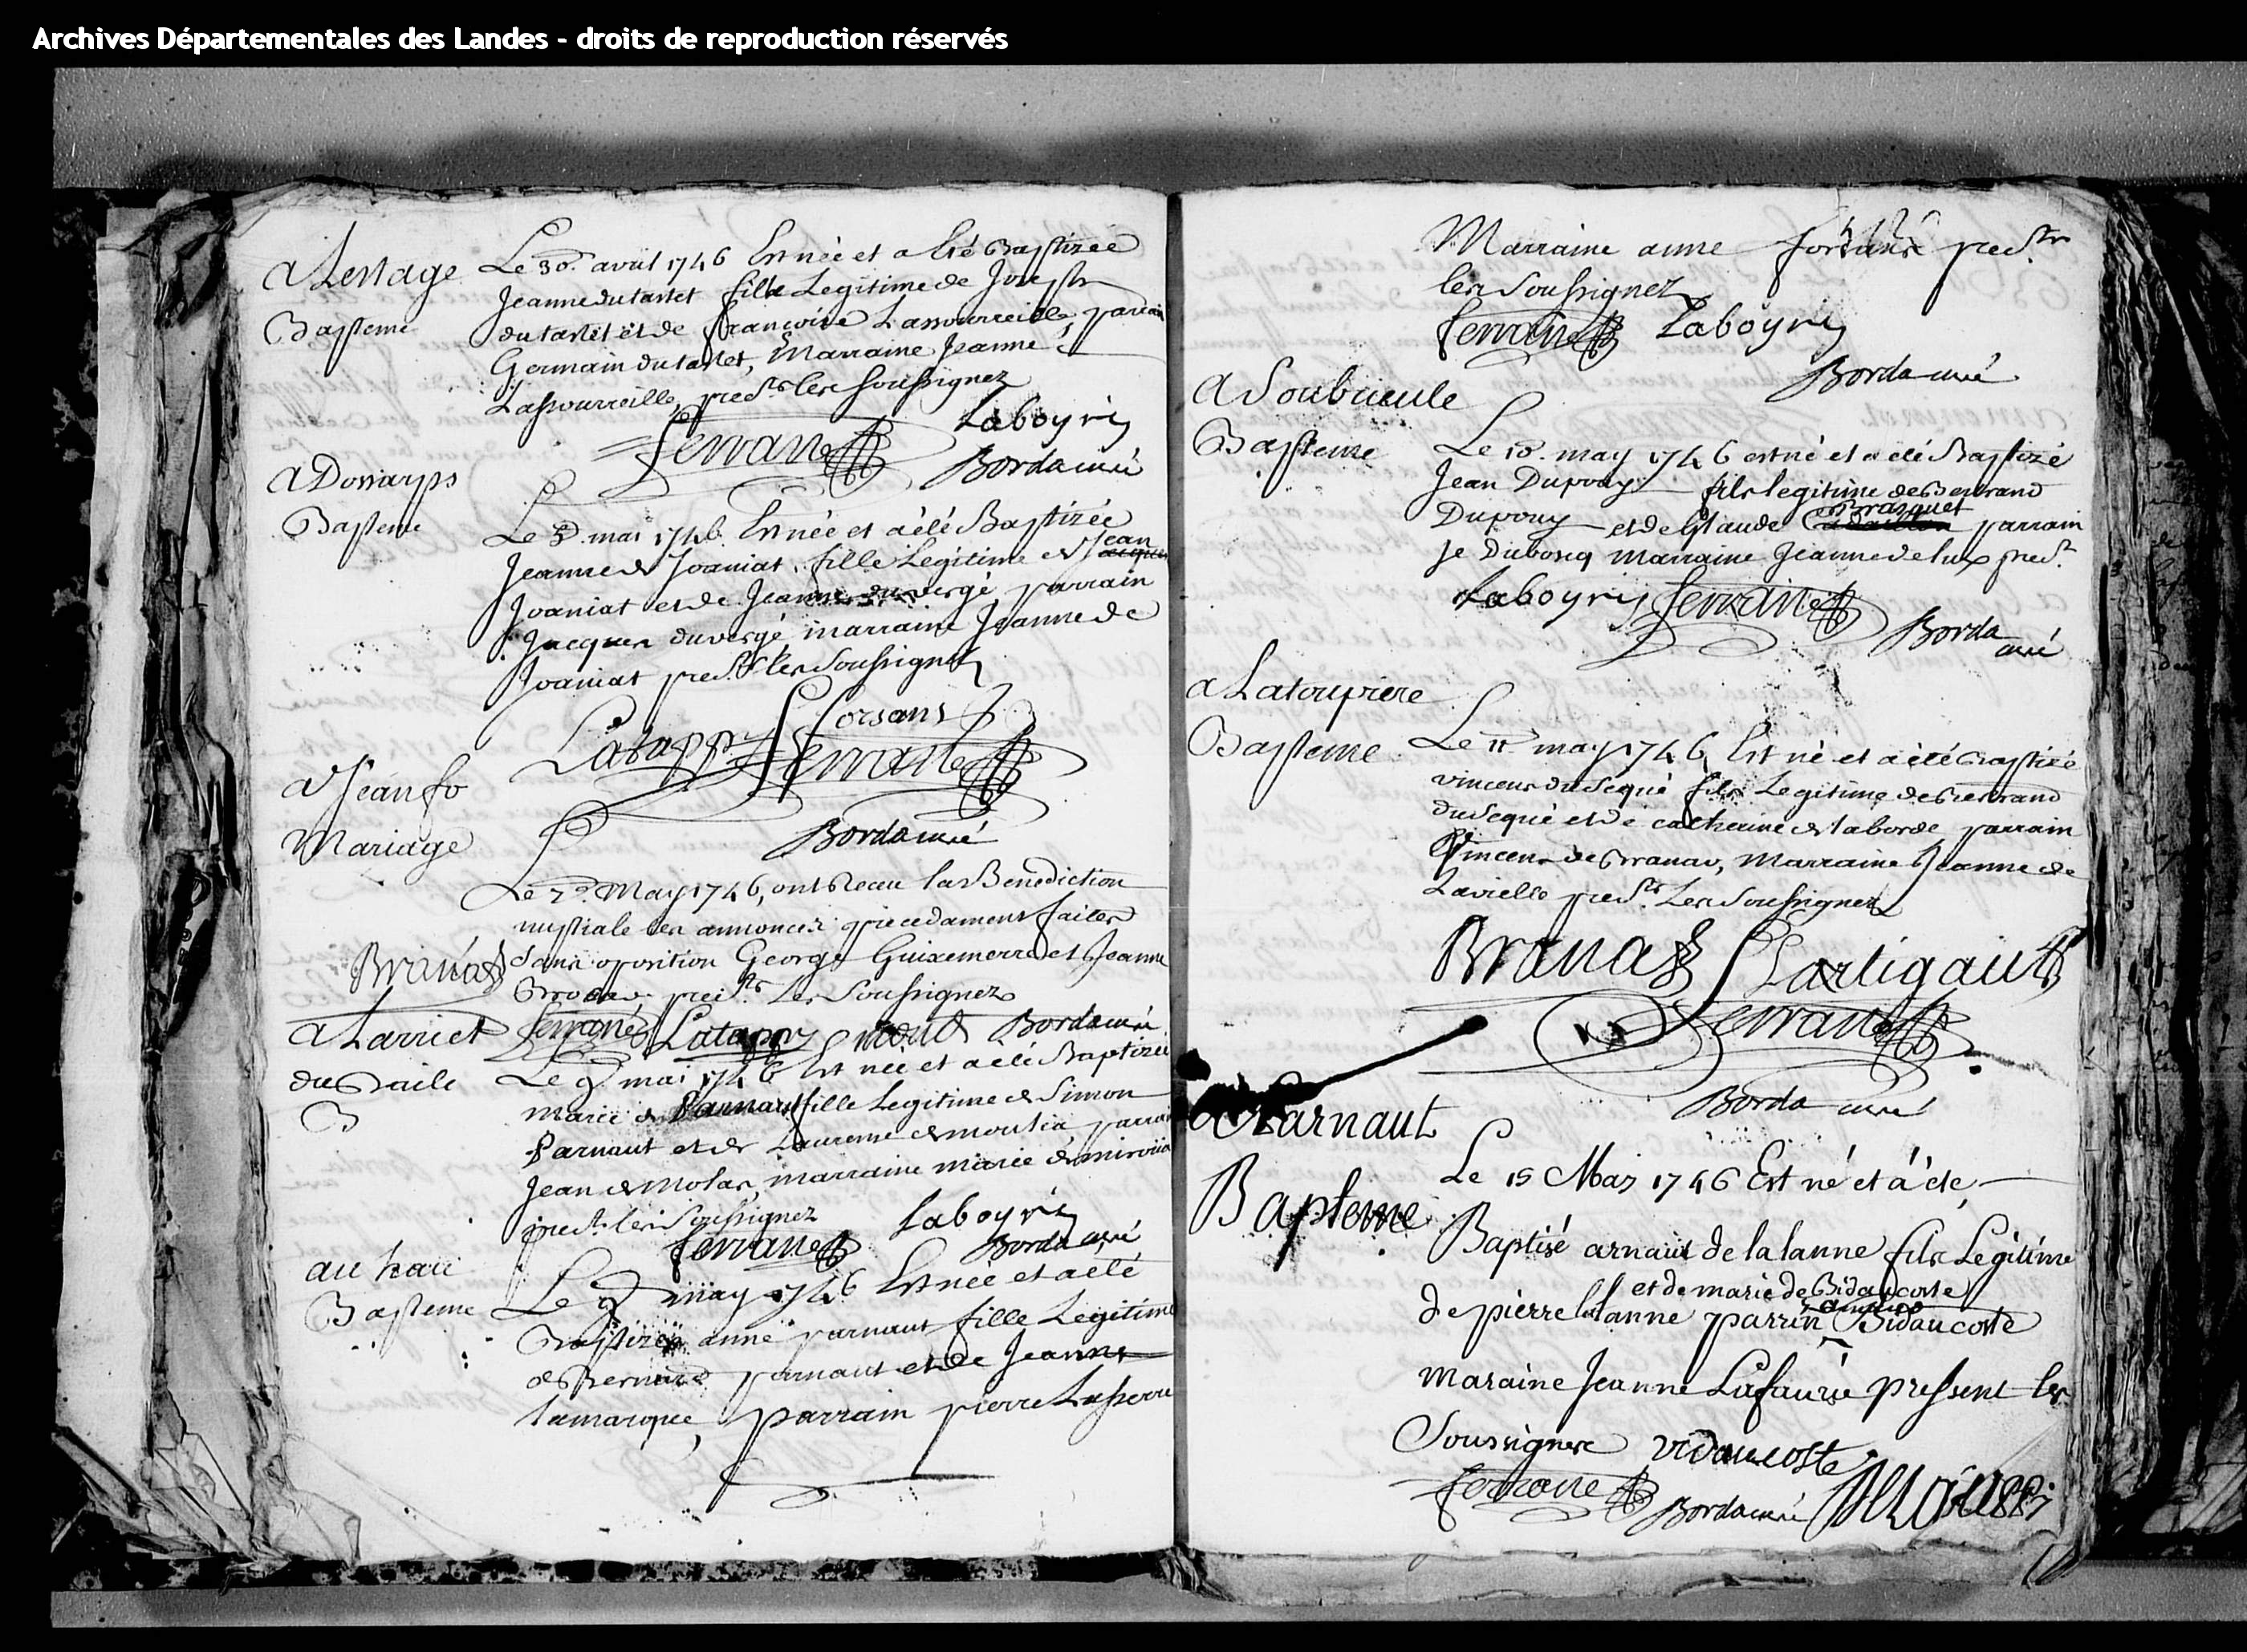 Archives Départementales des Landes - droits de reproduction réservés
A Lestage
Bapteme
Le 30e. avril 1746 Est née et a été Baptizée
Jeanne dutastet fille Legitime de Joseph
dutastet et de françoise Lassourreille, parain
Germain dutastet, Marraine Jeanne
Lassourreille, presents les soussignez
ferrané Laboyrie
Borda curé
Bapteme
Le mai 1746. Est née et a été Baptizée
Jeanne de Joaniat, fille Legitime de Jean
Joaniat et de Jeanne duvergé, parrain
Jacques duvergé marraine Jeanne de
Joaniat presents les soussignez
Corsans
Latappy ferrané
Borda curé
a Jeanfo
Mariage
Le May 1746, ont Receu la Benediction
nuptiale les annonces precedament faites
sans oposition George Guixemerre et Jeanne
presents Les Soussignez
Branas
ferrané Latappy Borda curé
a Larriet
du Baile
B
Le 9 mai 1746 Est née et a été Baptizée
Marie de Parnaut fille Legitime de Simon
Parnaut et de Laurence de moulia parrain
Jean de molas, marraine marie de
presents les soussignez Laboyrie
ferrané Borda curé
au haii
Bapteme
Le 9 may 1746 Est née et a été
Baptizée anne parnaut fille Legitime
de Bernard parnaut et de Jeanne
Lamarque, parrain pierre Lasserre
Marraine anne presents
les Soussignez
ferrané Laboyrie
Borda curé
A Soubieule
Bapteme
Le 10. may 1746 est né et a été Baptizé
Jean Dupouy fils legitime de Bertrand
Brasquet
Dupouy et de Claude parrain
Je Dubosq Marraine Jeanne de lux pred.
Laboyrie ferrané
Borda
curé
a Latoupiere
Bapteme
Le 11 may 1746 Est né et a été Baptizé
vincens duSequé fils Legitime de Bertrand
duSequé et de catherine de laborde parrain
Vincens de Branas, Marraine Jeanne de
Lavielle presents Les Soussignez
Branas Lartigaut
ferrané
Borda curé
a Larnaut
Bapteme
Le 15 Mai 1746 Est né et à été
Baptisé arnaut de lalanne fils Legitime
et de marie de Bidaucoste
de pierre lalanne parrin arnaud Bidaucoste
maraine Jeanne Lafaurie pressent les
Soussignere vidaucoste
ferrané Borda curé